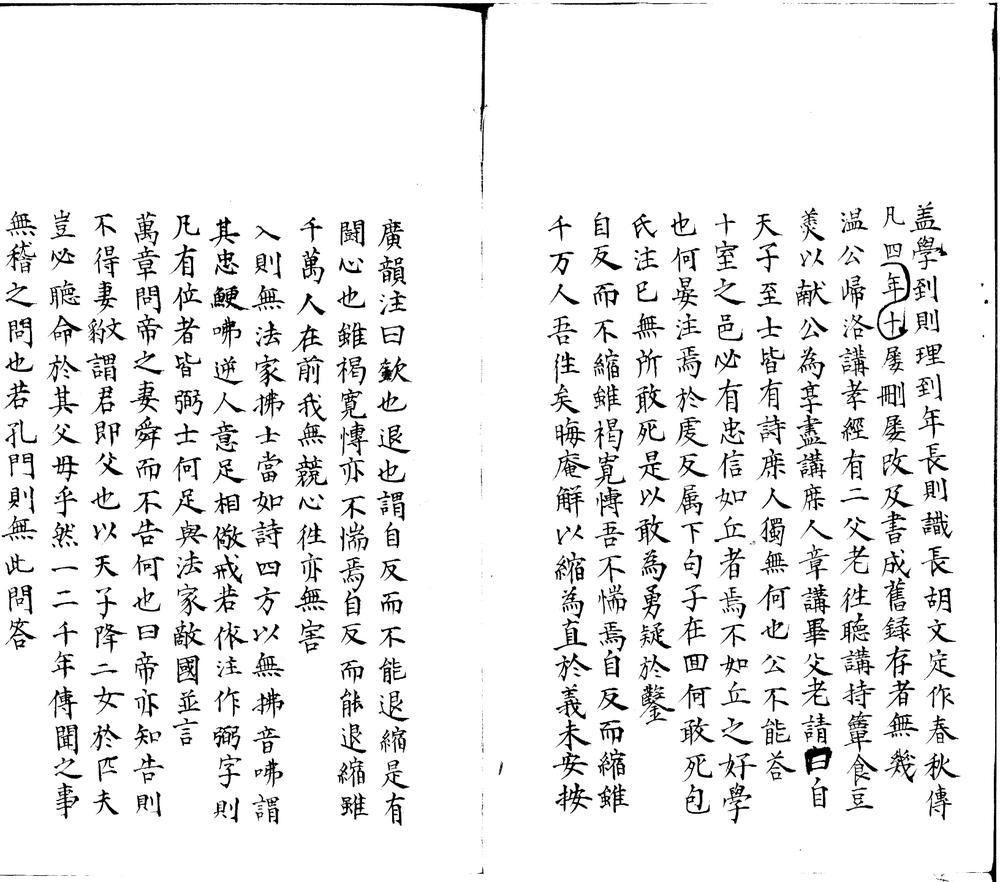 盖學到則理到年長則識長胡文定作春秋傳
凡四年十屡刪屡改及書成舊録存者無幾
温公帰洛講孝經有二父老徃聽講持簞食豆
羮以献公為享盡講庶人章講畢父老請曰自
天子至士皆有詩庶人獨無何也公不能荅
十室之邑必有忠信如丘者焉不如丘之好學
也何晏注焉於虔反属下句子在囬何敢死包
氏注已無所敢死是以敢為勇疑於鑿
自反而不縮雖褐寛愽吾不惴焉自反而縮雖
千万人吾徃矣晦庵解以縮為直於義未安按
廣韻注曰歛也退也謂自反而不能退縮是有
闘心也雖褐寛愽亦不惴焉自反而能退縮雖
千萬人在前我無競心徃亦無害
入則無法家拂士當如詩四方以無拂音咈謂
其忠鯁咈逆人意足相儆戒若依注作弼字則
凡有位者皆弼士何足與法家敵國並言
萬章問帝之妻舜而不告何也曰帝亦知告則
不得妻敹謂君即父也以天子降二女於匹夫
豈必聽命於其父母乎然一二千年傳聞之事
無稽之問也若孔門則無此問答